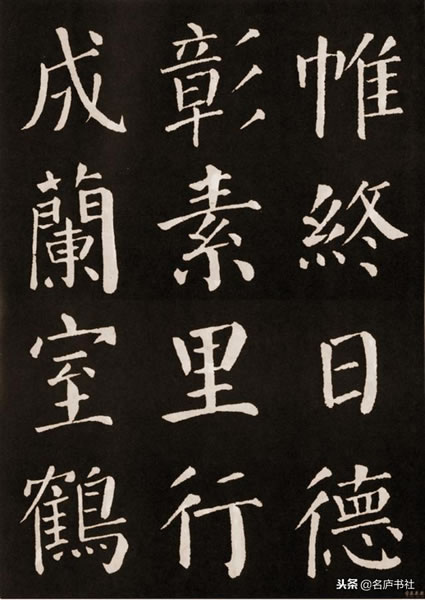 帷終日德
彰素里行
成蘭室鶴
头条@名庐书社